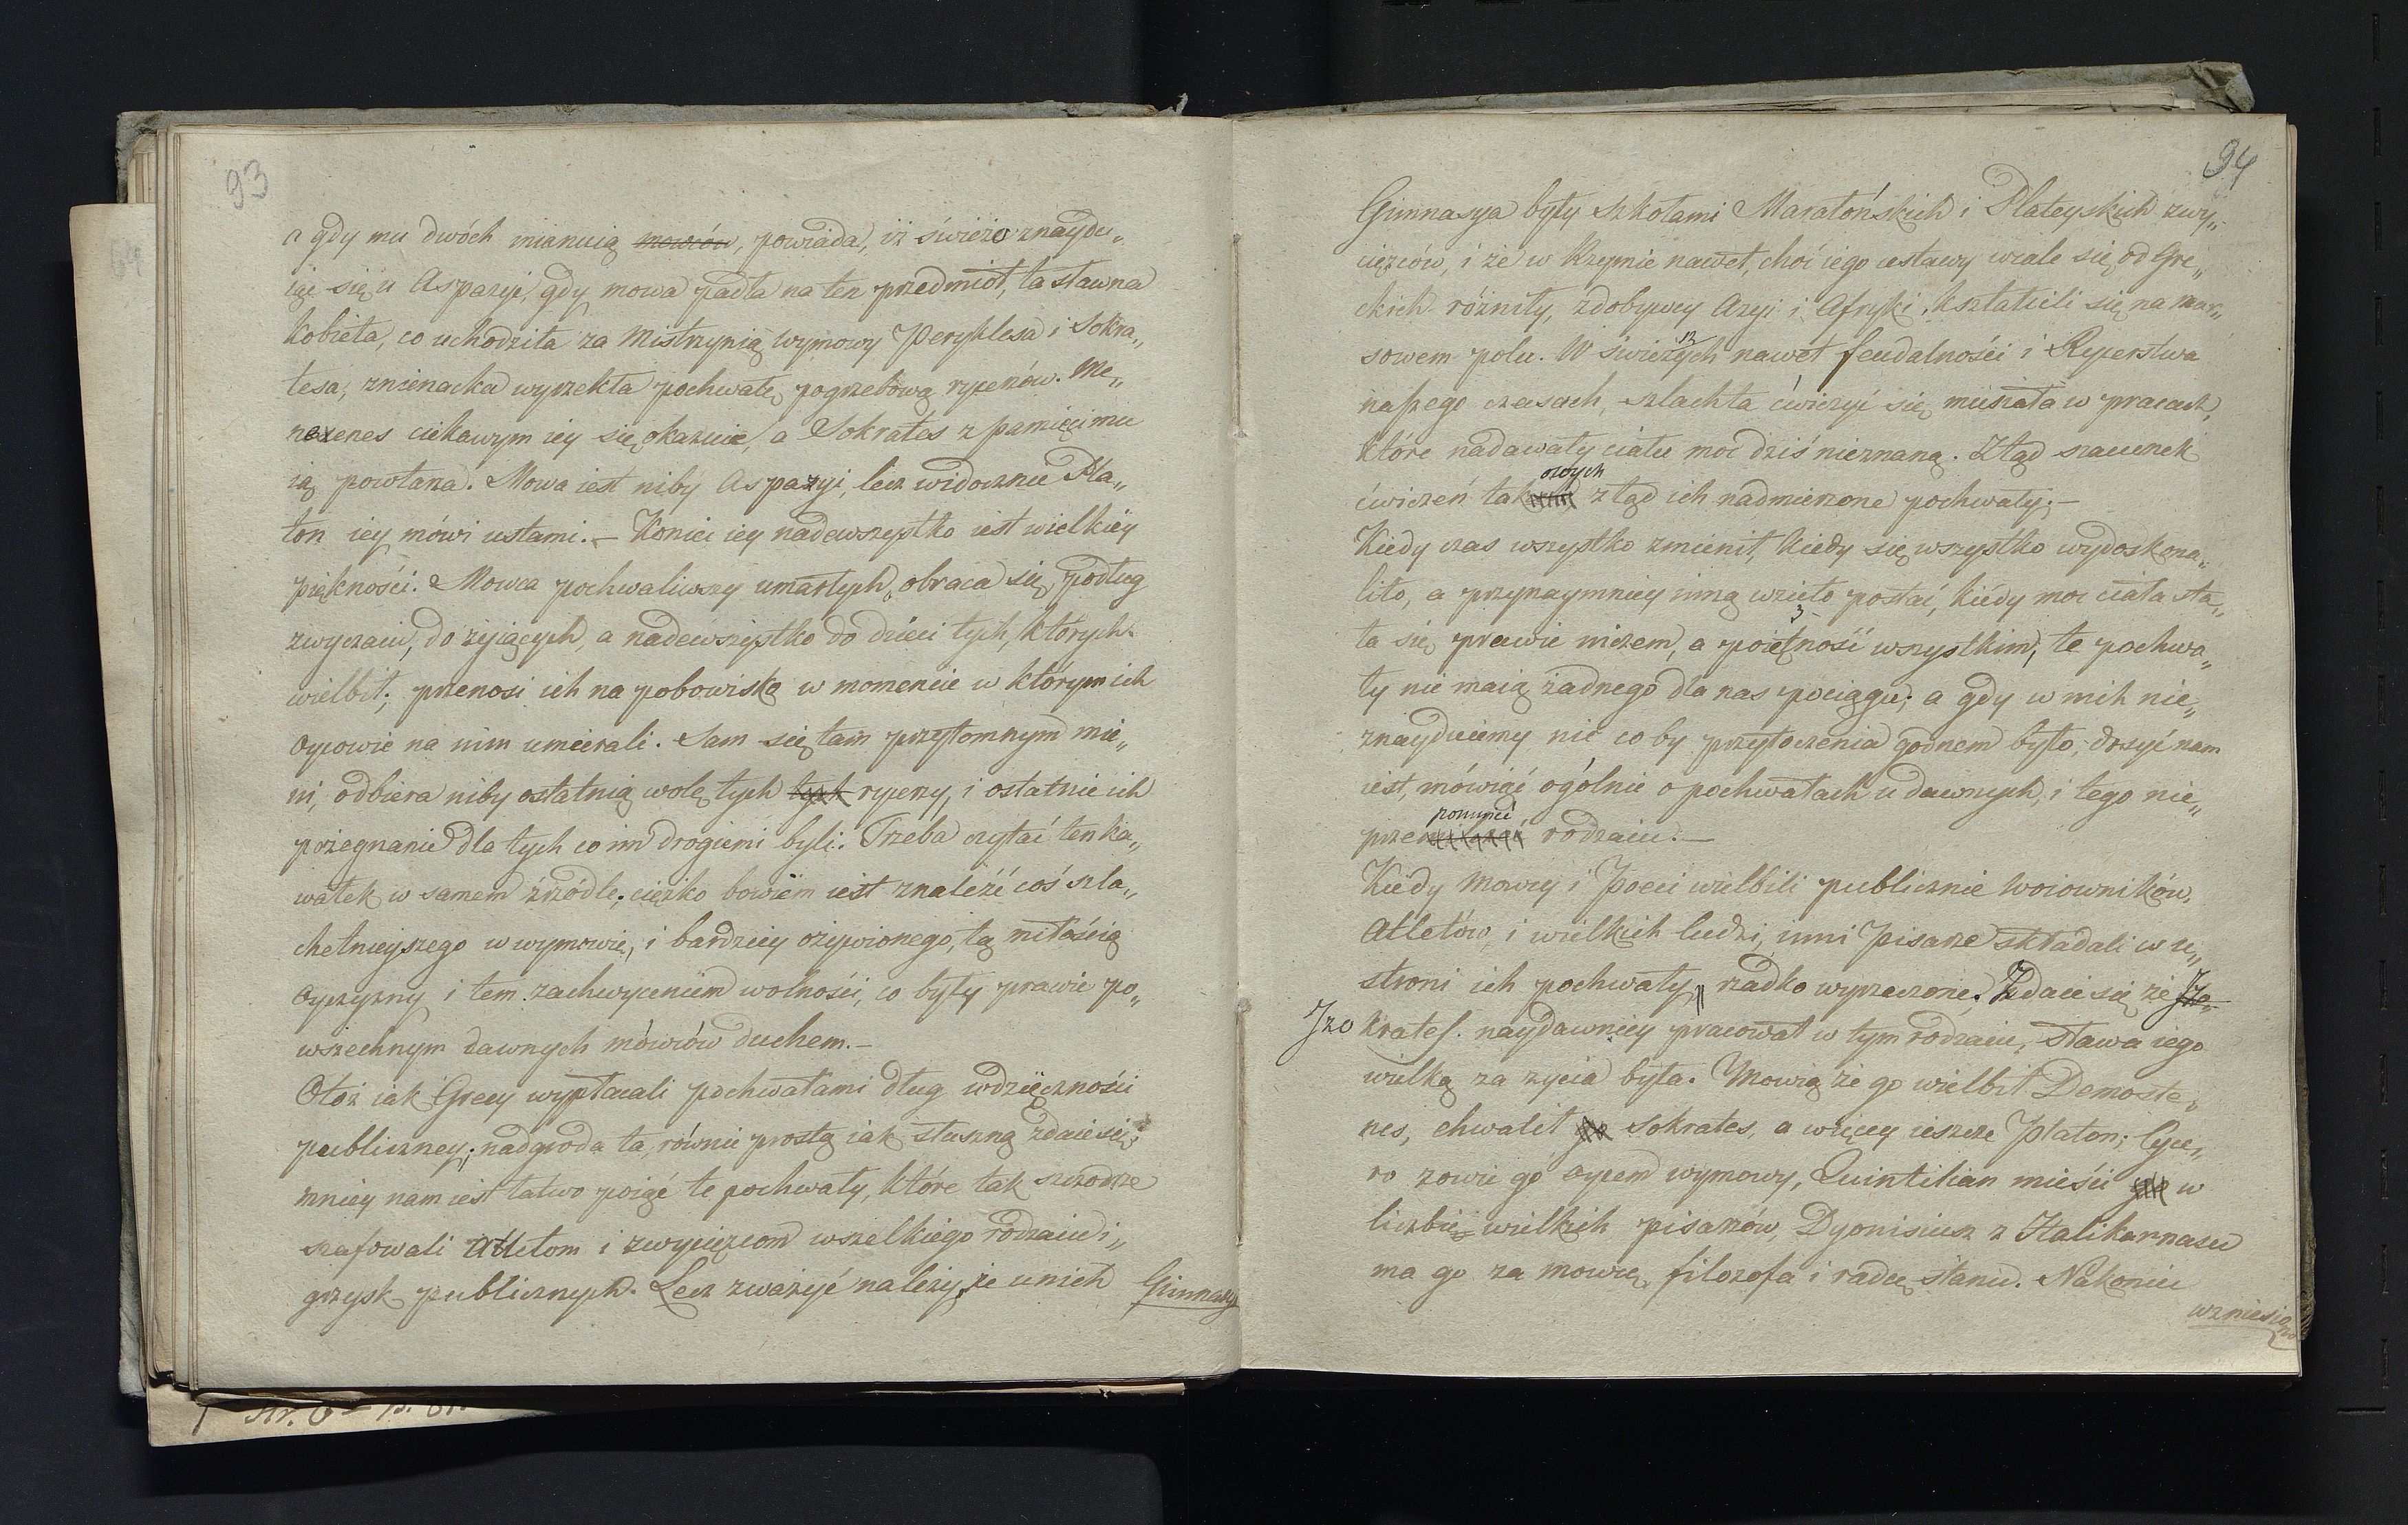 93
a gdy mu dwóch mianuią mowców, powiada, iż świeżo znaydu„
iąc się u Aspazyi, gdy mowa padła na ten przedmiot, ta sławna
kobieta, co uchodziła za Mistrzynią wymowy Peryklesa i Sokra„
tesa, znienacka wyrzekła pochwałę pogrzebową rycerzów. Me„
nexenes ciekawym iey się okazuie, a Sokrates z pamięci mu
ią powtarza. Mowa iest niby Aspazyi, lecz widocznie Pla„
ton iey mówi ustami. – Koniec iey nadewszystko iest wielkiéy
piękności. Mowca pochwaliwszy umarłych, obraca się, podług
zwyczaiu, do żyiących, a nadewszystko do dzieci tych, których
wielbił; przenosi ich na pobowisko w momencie w którym ich
Oycowie na nim umierali. Sam się tam przytomnym mie„
ni, odbiera niby ostatnią wolę tych tych rycerzy, i ostatnie ich
pożegnanie dla tych co im drogiemi byli. Trzeba czytać ten ka„
wałek w samem źrzódle, ciężko bowiem iest znaleźć coś szla„
chetnieyszego w wymowie, i bardziey ożywionego, tą miłością
oyczyzny i tem zachwyceniem wolności, co były prawie po„
wszechnym dawnych mówców duchem. –
Otóż iak Grecy wypłacali pochwałami dług wdzięczności
publiczney; nadgroda ta, równie prostą iak słuszną zdaie się;
mniey nam iest łatwo poiąć te pochwały, które tak szczodrze
szafowali Atletom i zwycięzcom wszelkiego rodzaiu i„
grzysk publicznych. Lecz zważyć należy, że u nich
Gimnasya
94
Gimnasya były szkołami Maratońskich i Plateyskich zwy„
cięzców, i że w Rzymie nawet, choć iego ustawy wiele się od Gre„
ckich różniły, zdobywcy Azyi i Afryki, kształcili się na mar„
sowem polu. W świeższych nawet feudalności i Rycerstwa
naszego czasach, szlachta ćwiczyć się musiała w pracach,
które nadawały ciału moc dziś nieznaną. Ztąd szacunek
owych
ćwiczeń tak ztąd ich nadmierzone pochwały. –
Kiedy czas wszystko zmienił, kiedy się wszystko wydoskona„
liło, a przynaymniey inną wzieło postać, kiédy moc ciała sta„
ła się prawie niczem, a poiętność wszystkim, te pochwa„
ły nie maią żadnego dla nas pociągu; a gdy w nich nie„
znayduiemy nic co by przytoczenia godnem było, dosyć nam
iest, mówiąć ogólnie o pochwałach u dawnych, i tego nie„
pomnieć
prze rodzaiu. –
Kiédy Mowcy i Poeci wielbili publicznie woiowników,
Atletów, i wielkich ludzi, inni Pisarze składali w u„
stroni ich pochwały, rzadko wyrzeczone. Zdaie się że Izo„
Izo krates. naydawniey pracował w tym rodzaiu, sława iego
wielką za życia była. Mowią że go wielbił Demoste„
nes, chwalił go Sokrates, a więcey ieszcze Platon; Cyce„
ro zowie go oycem wymowy, Quintilian mieści go w
liczbie wielkich pisarzów, Dyonisiusz z Halikarnasu
ma go za mowcę, filozofa i radcę stanu. Nakoniec
wzniesiono